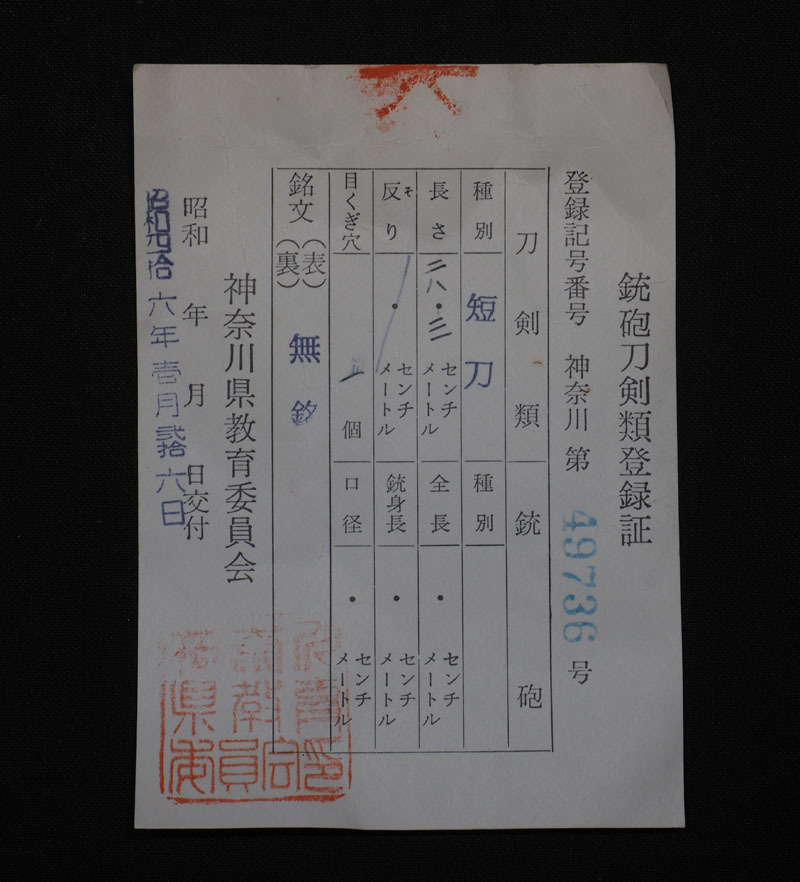 銃砲刀剣類登録証
登録記号番号 神奈川 第 49736 号
刀剣類 銃砲
種別 短刀 種別
長さ 二八・三 センチメートル 全長 ・ センチメートル
反り そ ・ センチメートル 銃身長 ・ センチメートル
目くぎ穴 個 口径 ・ センチメートル
銘文 (表) 無銘
(裏)
神奈川県教育委員会
昭和 年 月 日交付
昭和四拾六年壱月弐拾六日
県教育
委員会印